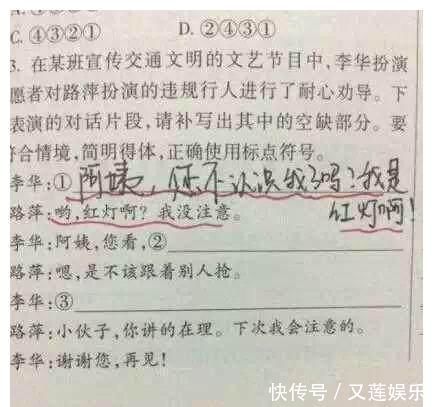 C. ④③②① D. ②④③①
3. 在某班宣传交通文明的文艺节目中,李华扮演
愿者对路萍扮演的违规行人进行了耐心劝导。下
表演的对话片段,请补写出其中的空缺部分。要
符合情境,简明得体,正确使用标点符号。
李华:①阿姨,您不认识我了吗?我是
红灯啊!
路萍:哟,红灯啊?我没注意。
李华:阿姨,您看,②
路萍:嗯,是不该跟着别人抢。
李华:③
路萍:小伙子,你讲的在理。下次我会注意的。
李华:谢谢您,再见!
快传号/又莲娱乐